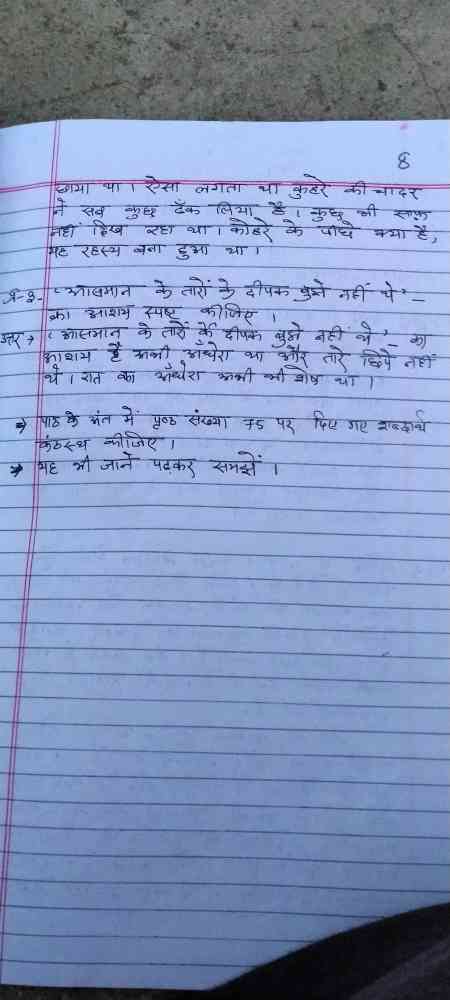 8
छाया था । ऐसा लगता था कुहरे की चादर
ने सब कुछ ढँक लिया है । कुछ भी साफ
नहीं दिख रहा था । कोहरे के पीछे क्या है,
यह रहस्य बना हुआ था ।
प्र-3- 'आसमान के तारों के दीपक बुझे नहीं थे' –
का आशय स्पष्ट कीजिए ।
उत्तर → 'आसमान के तारों के दीपक बुझे नहीं थे' – का
आशय है अभी अँधेरा था और तारे छिपे नहीं
थे । रात का अँधेरा अभी भी शेष था ।
⇒ पाठ के अंत में पृष्ठ संख्या 75 पर दिए गए शब्दार्थ
कंठस्थ कीजिए ।
⇒ यह भी जानें पढ़कर समझें ।